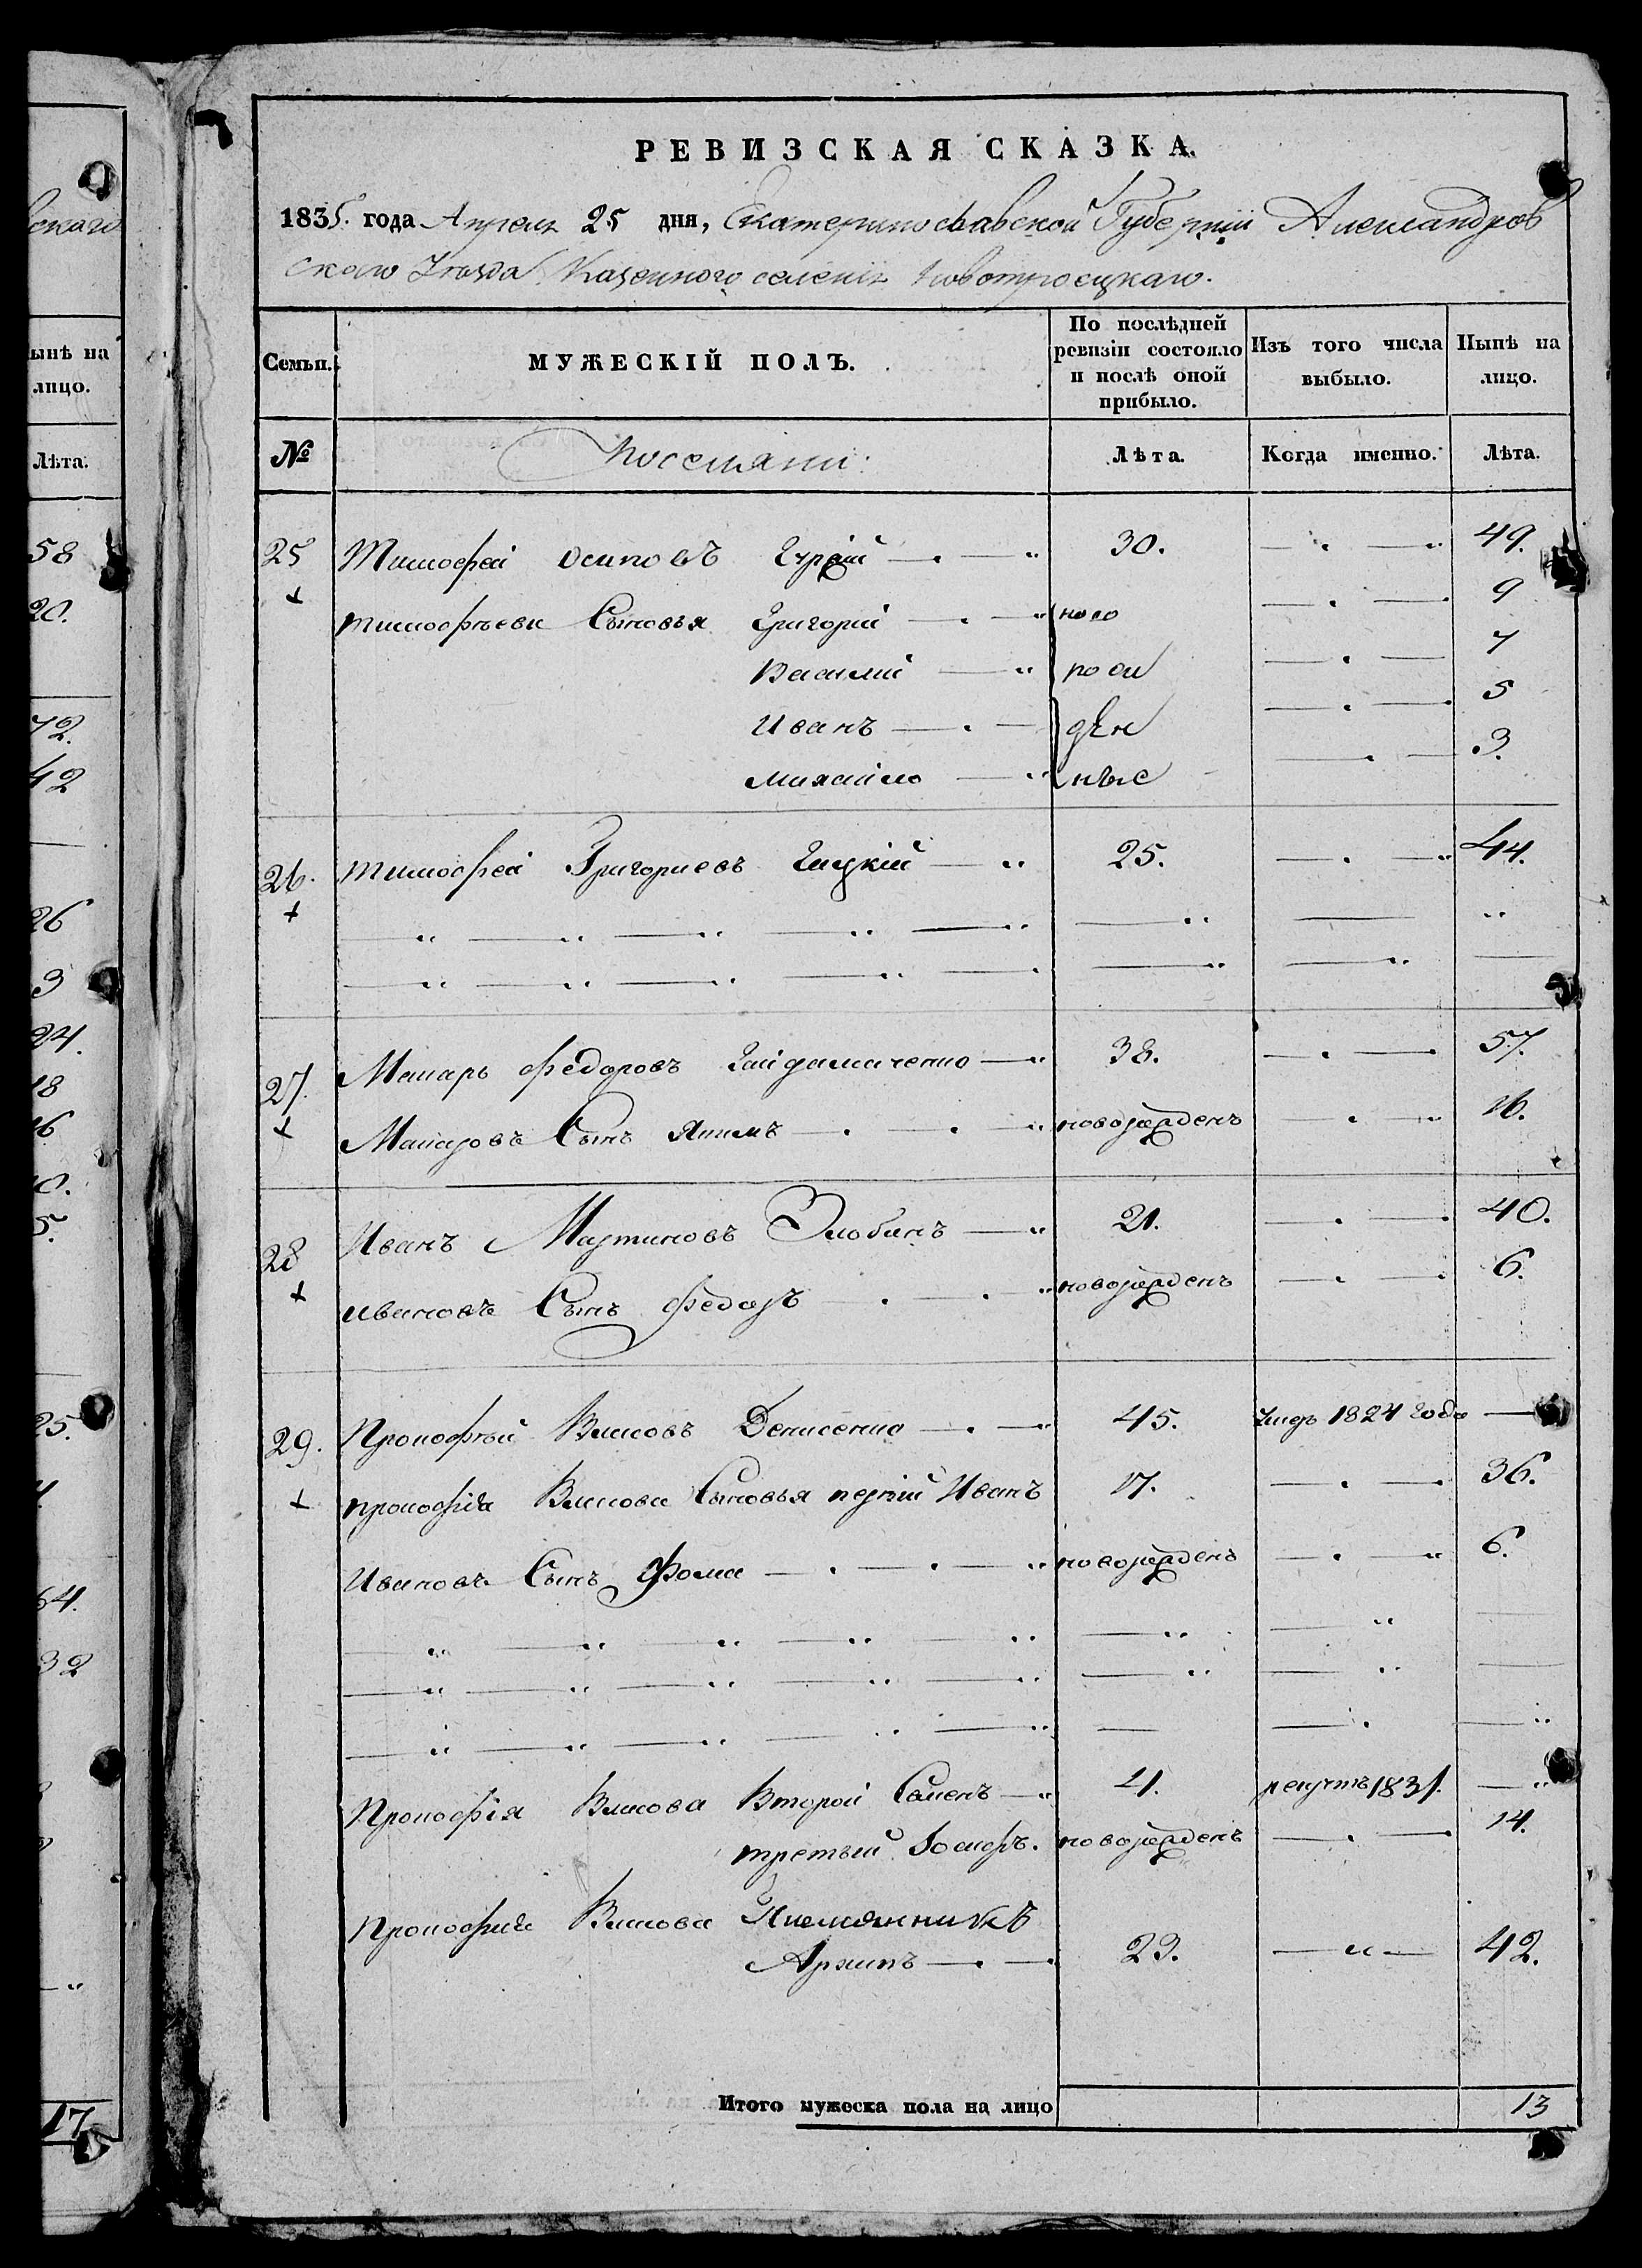 РЕВИЗСКАЯ СКАЗКА.
1835. года Апреля 25 дня, Екатеринославской Губернии Александров
скаго Уезда Казенного селения Новотроецкаго.
Семьи.
МУЖЕСКІЙ ПОЛЪ.
По послѣдней ревизіи состояло и послѣ оной прибыло.
Изъ того числа выбыло.
Нынѣ на лицо.
№
Поселяни:
Лѣта.
Когда именно.
Лѣта.
25 Тимофей Осиповъ 30. 49.
Тимофѣева Сыновья Григорій ново 9
Василий рож 7
Иванъ ден 5
Михайло ные 3.
26. Тимофей Григориевъ 25. 44.
27. Макаръ Федоровъ Гайдамаченко 38. 57.
Макаровъ Сынъ Якимъ новорожденъ 16.
28 Иванъ Мартиновъ Злобинъ 21. 40.
Ивановъ Сынъ Федоръ новорожденъ 6.
29. Прокофѣй Власовъ Денисенко 45. Умеръ 1824 года
Прокофія Власова Сыновья первый Иванъ 17. 36.
Ивановъ Сынъ Фома новорожденъ 6.
Прокофія Власова Второй Семенъ 4. рекрутъ 1831.
третый Іосифъ. новорожденъ 14.
Прокофия Власова Племянникъ
Архипъ 23. 42.
Итого мужеска пола на лицо 13
скаго
ынѣ на
лицо.
Лѣта.
58
20.
72.
42
26
3
24.
18
16
10.
5.
25.
64.
32
17